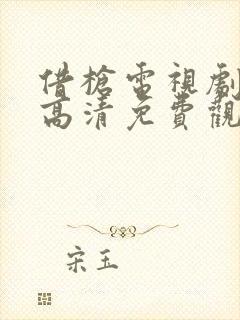 借槍電視劇
高清免費觀
宋玉